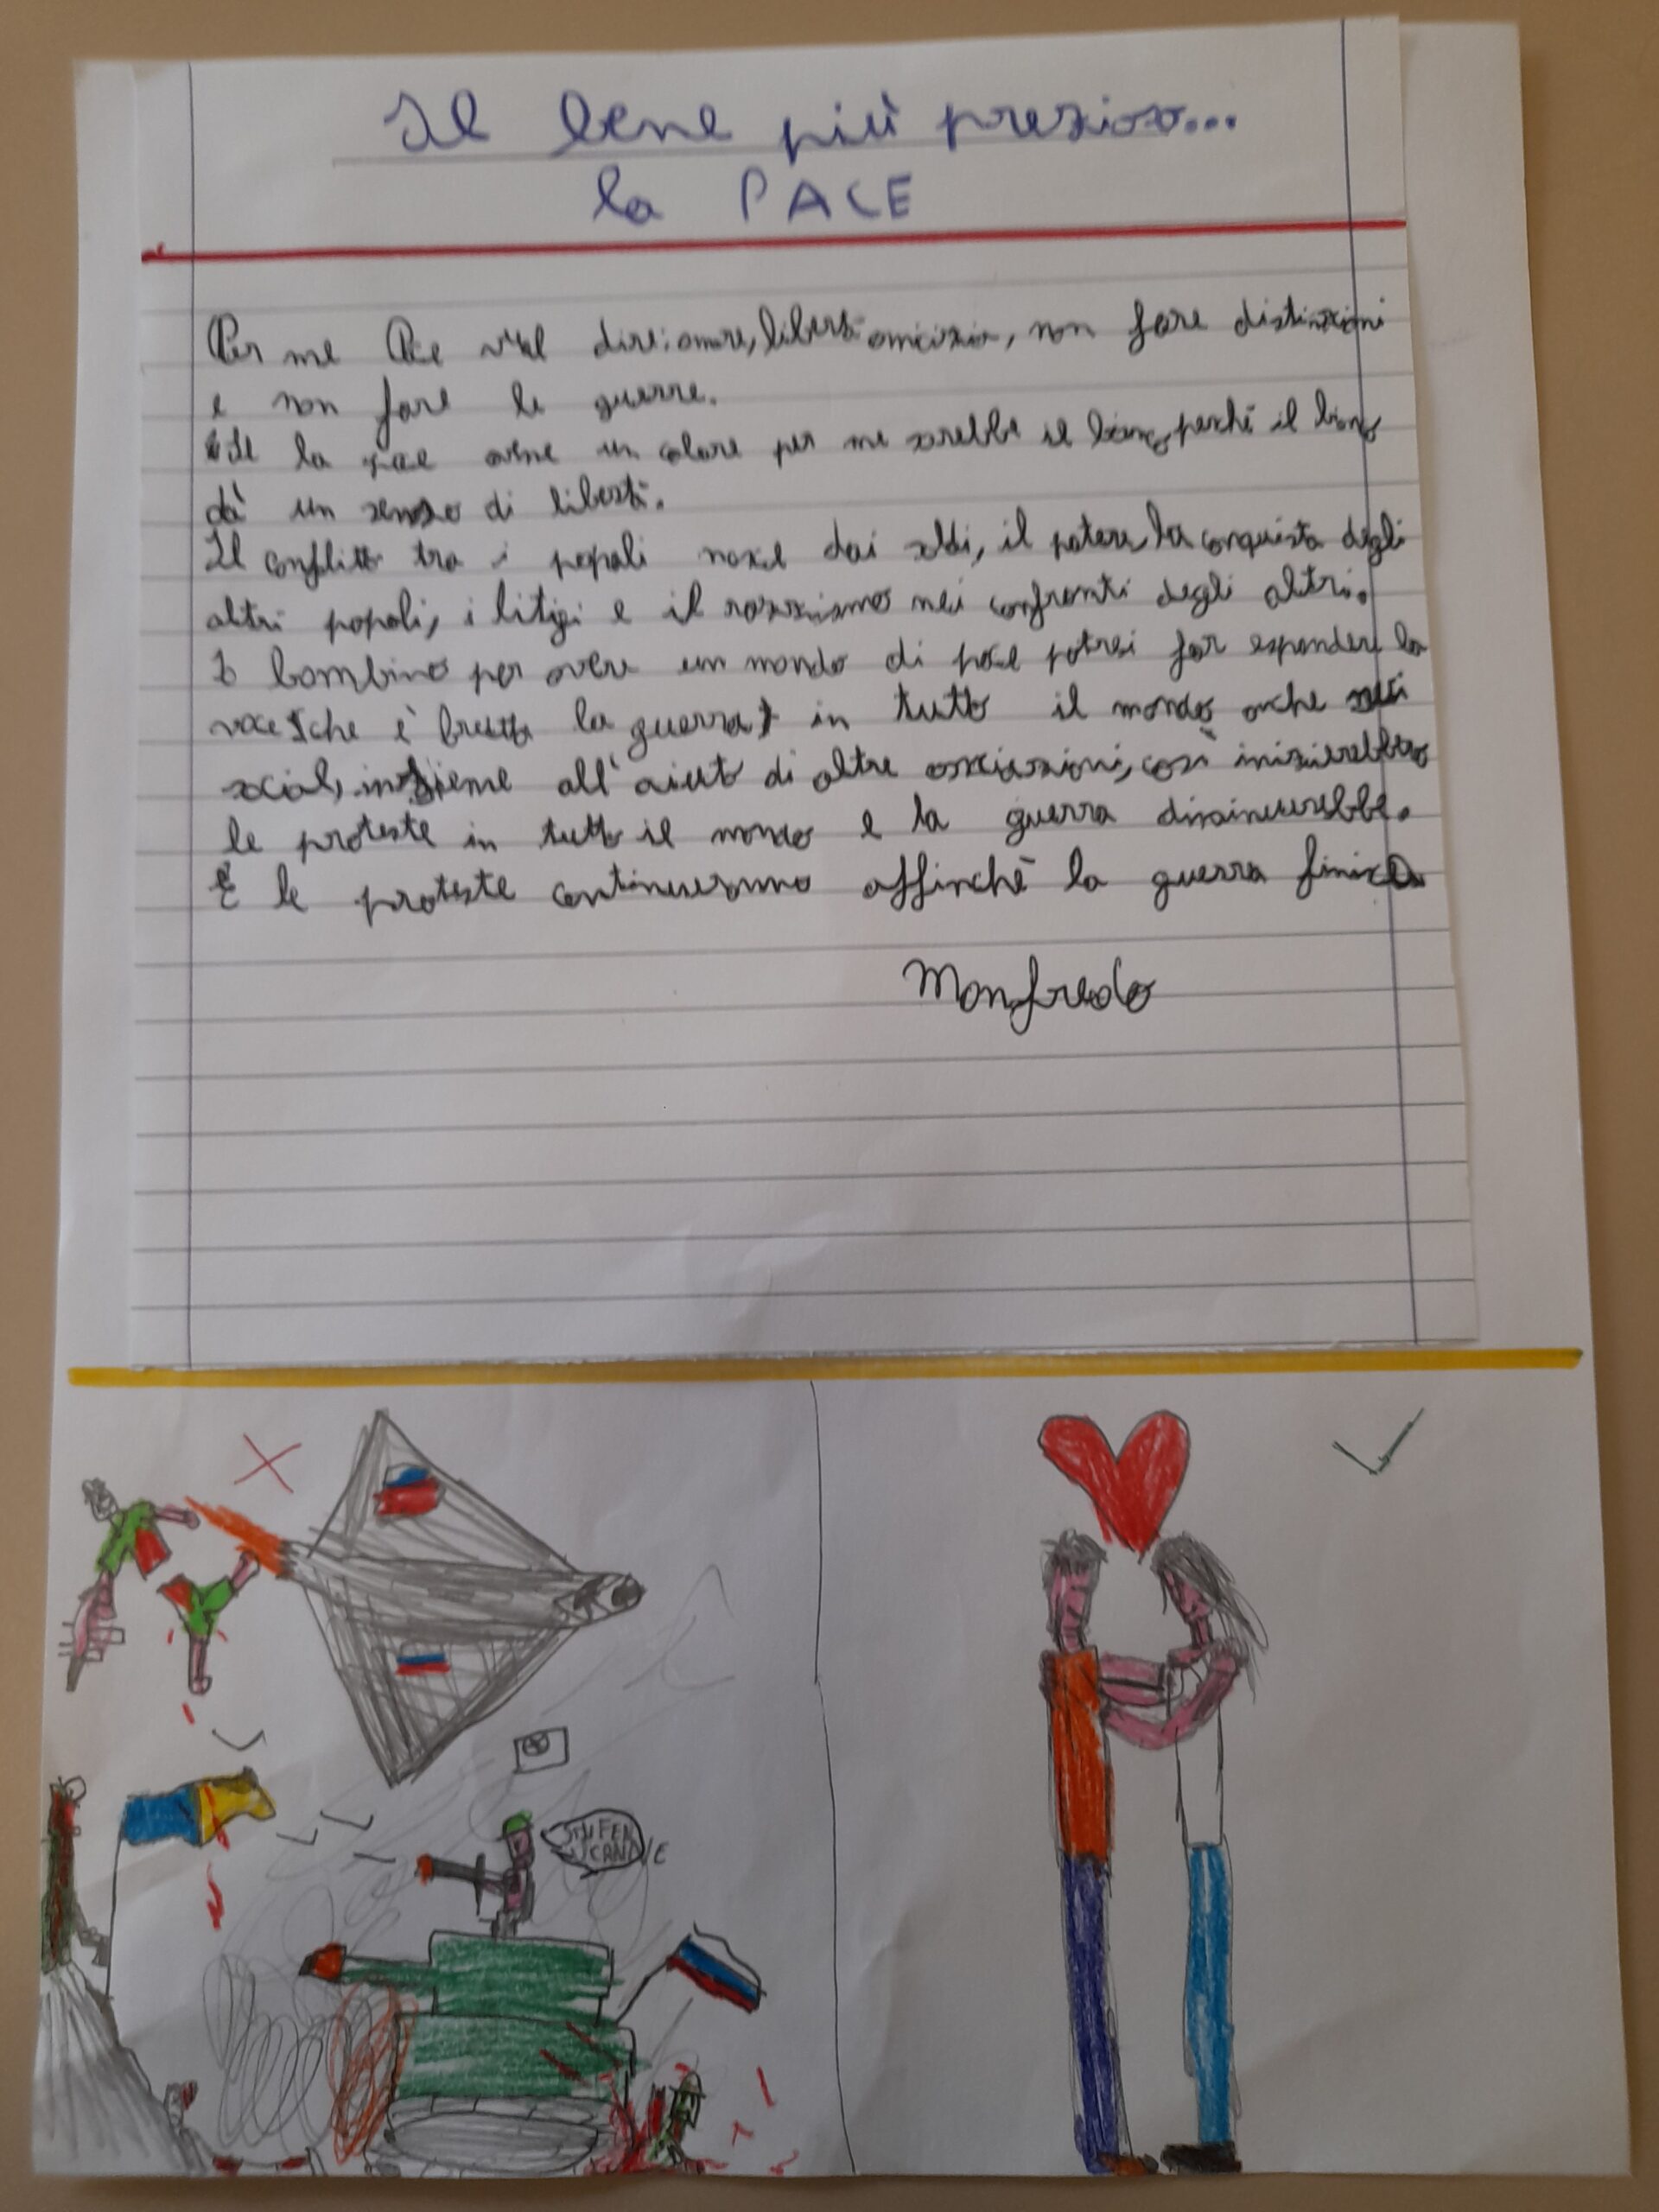 Il bene più prezioso...
la PACE
Per me Pace vuol dire: amore, libertà amicizia, non fare distinzioni
e non fare le guerre.
Se la pace avesse un colore per me sarebbe il bianco perché il bianco
dà un senso di libertà.
Il conflitto tra i popoli nasce dai soldi, il potere, la conquista degli
altri popoli, i litigi e il razzismo nei confronti degli altri.
Io bambino per avere un mondo di pace potrei far espandere la
voce (che è brutta la guerra) in tutto il mondo anche sui
social, insieme all'aiuto di altre associazioni, così inizierebbero
le proteste in tutto il mondo e la guerra diminuirebbe.
E le proteste continueranno affinchè la guerra finisca
Manfredo